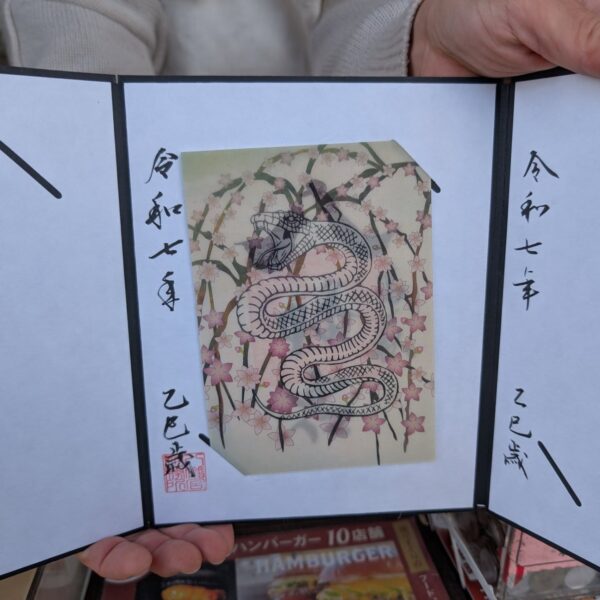 令和七年
乙巳歳
令和七年
乙巳歳
ハンバーガー 10店舗
HAMBURGER